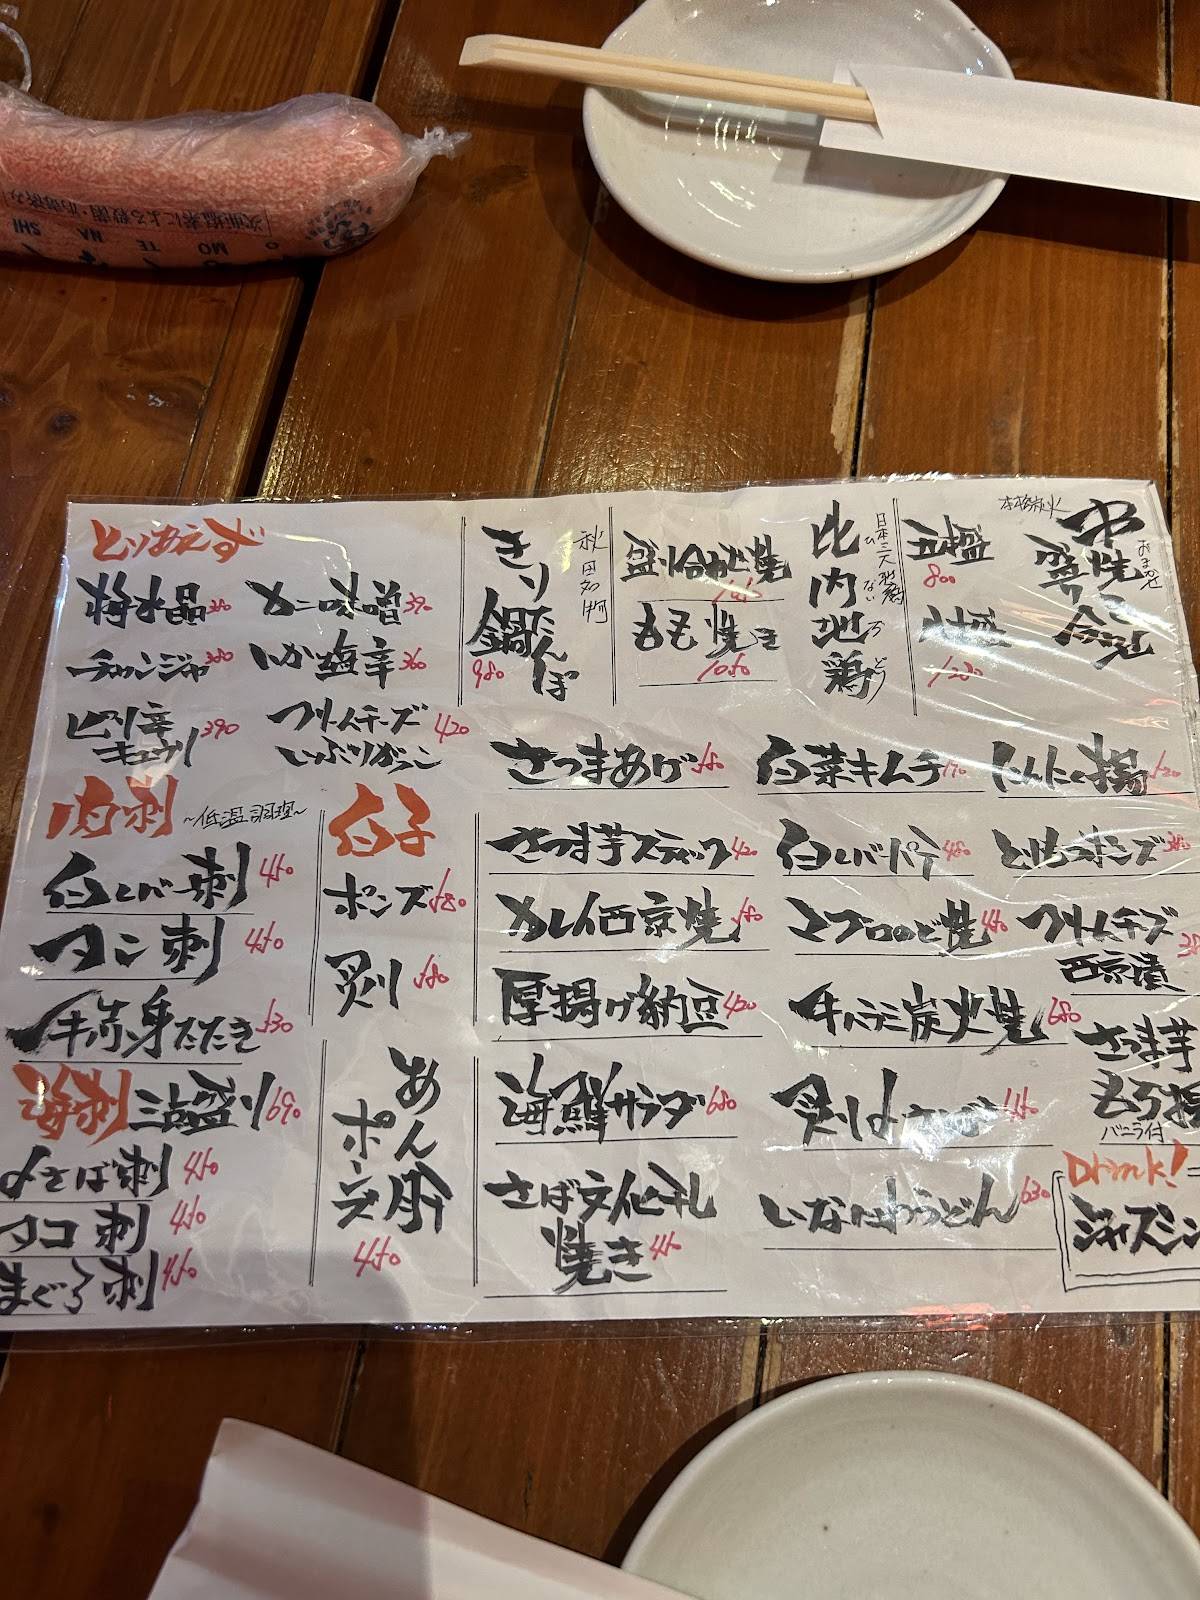 とりあえず
豚水晶 380
カニ味噌 390
チャンジャ 380
いか塩辛 360
ピリ辛キュウリ 390
クリームチーズいぶりがっこ 420
肉刺 ~低温調理~
白レバー刺 450
タン刺 450
牛赤身たたき 530
海刺 三点盛り 690
〆さば刺 450
タコ刺 450
まぐろ刺 450
白子
ポンズ 580
炙り 580
あん肝ポン酢 450
秋田名物
きりたんぽ鍋 980
日本三大地鶏
比内地鶏
ひ ない ぢ どり
もも焼き 1080
本格炭火
串焼き盛り合わせ
おまかせ
五本盛 800
八本盛 1280
さつまあげ 580
白菜キムチ
にんにく揚 520
さつま芋スティック 420
白レバーパテ 480
とり皮ポンズ 380
カレイ西京焼 580
マグロのど焼 450
クリームチーズ西京漬
厚揚げ納豆 420
牛ハラミ炭火焼 680
さつま芋もろ揚
バニラ付
海鮮サラダ 680
炙り〆さば
さば文化干し焼き 450
いなにわうどん 630
Drink!
ジャスミン
次亜塩素による殺菌・消毒済み
O
MO
TE
NA
SHI